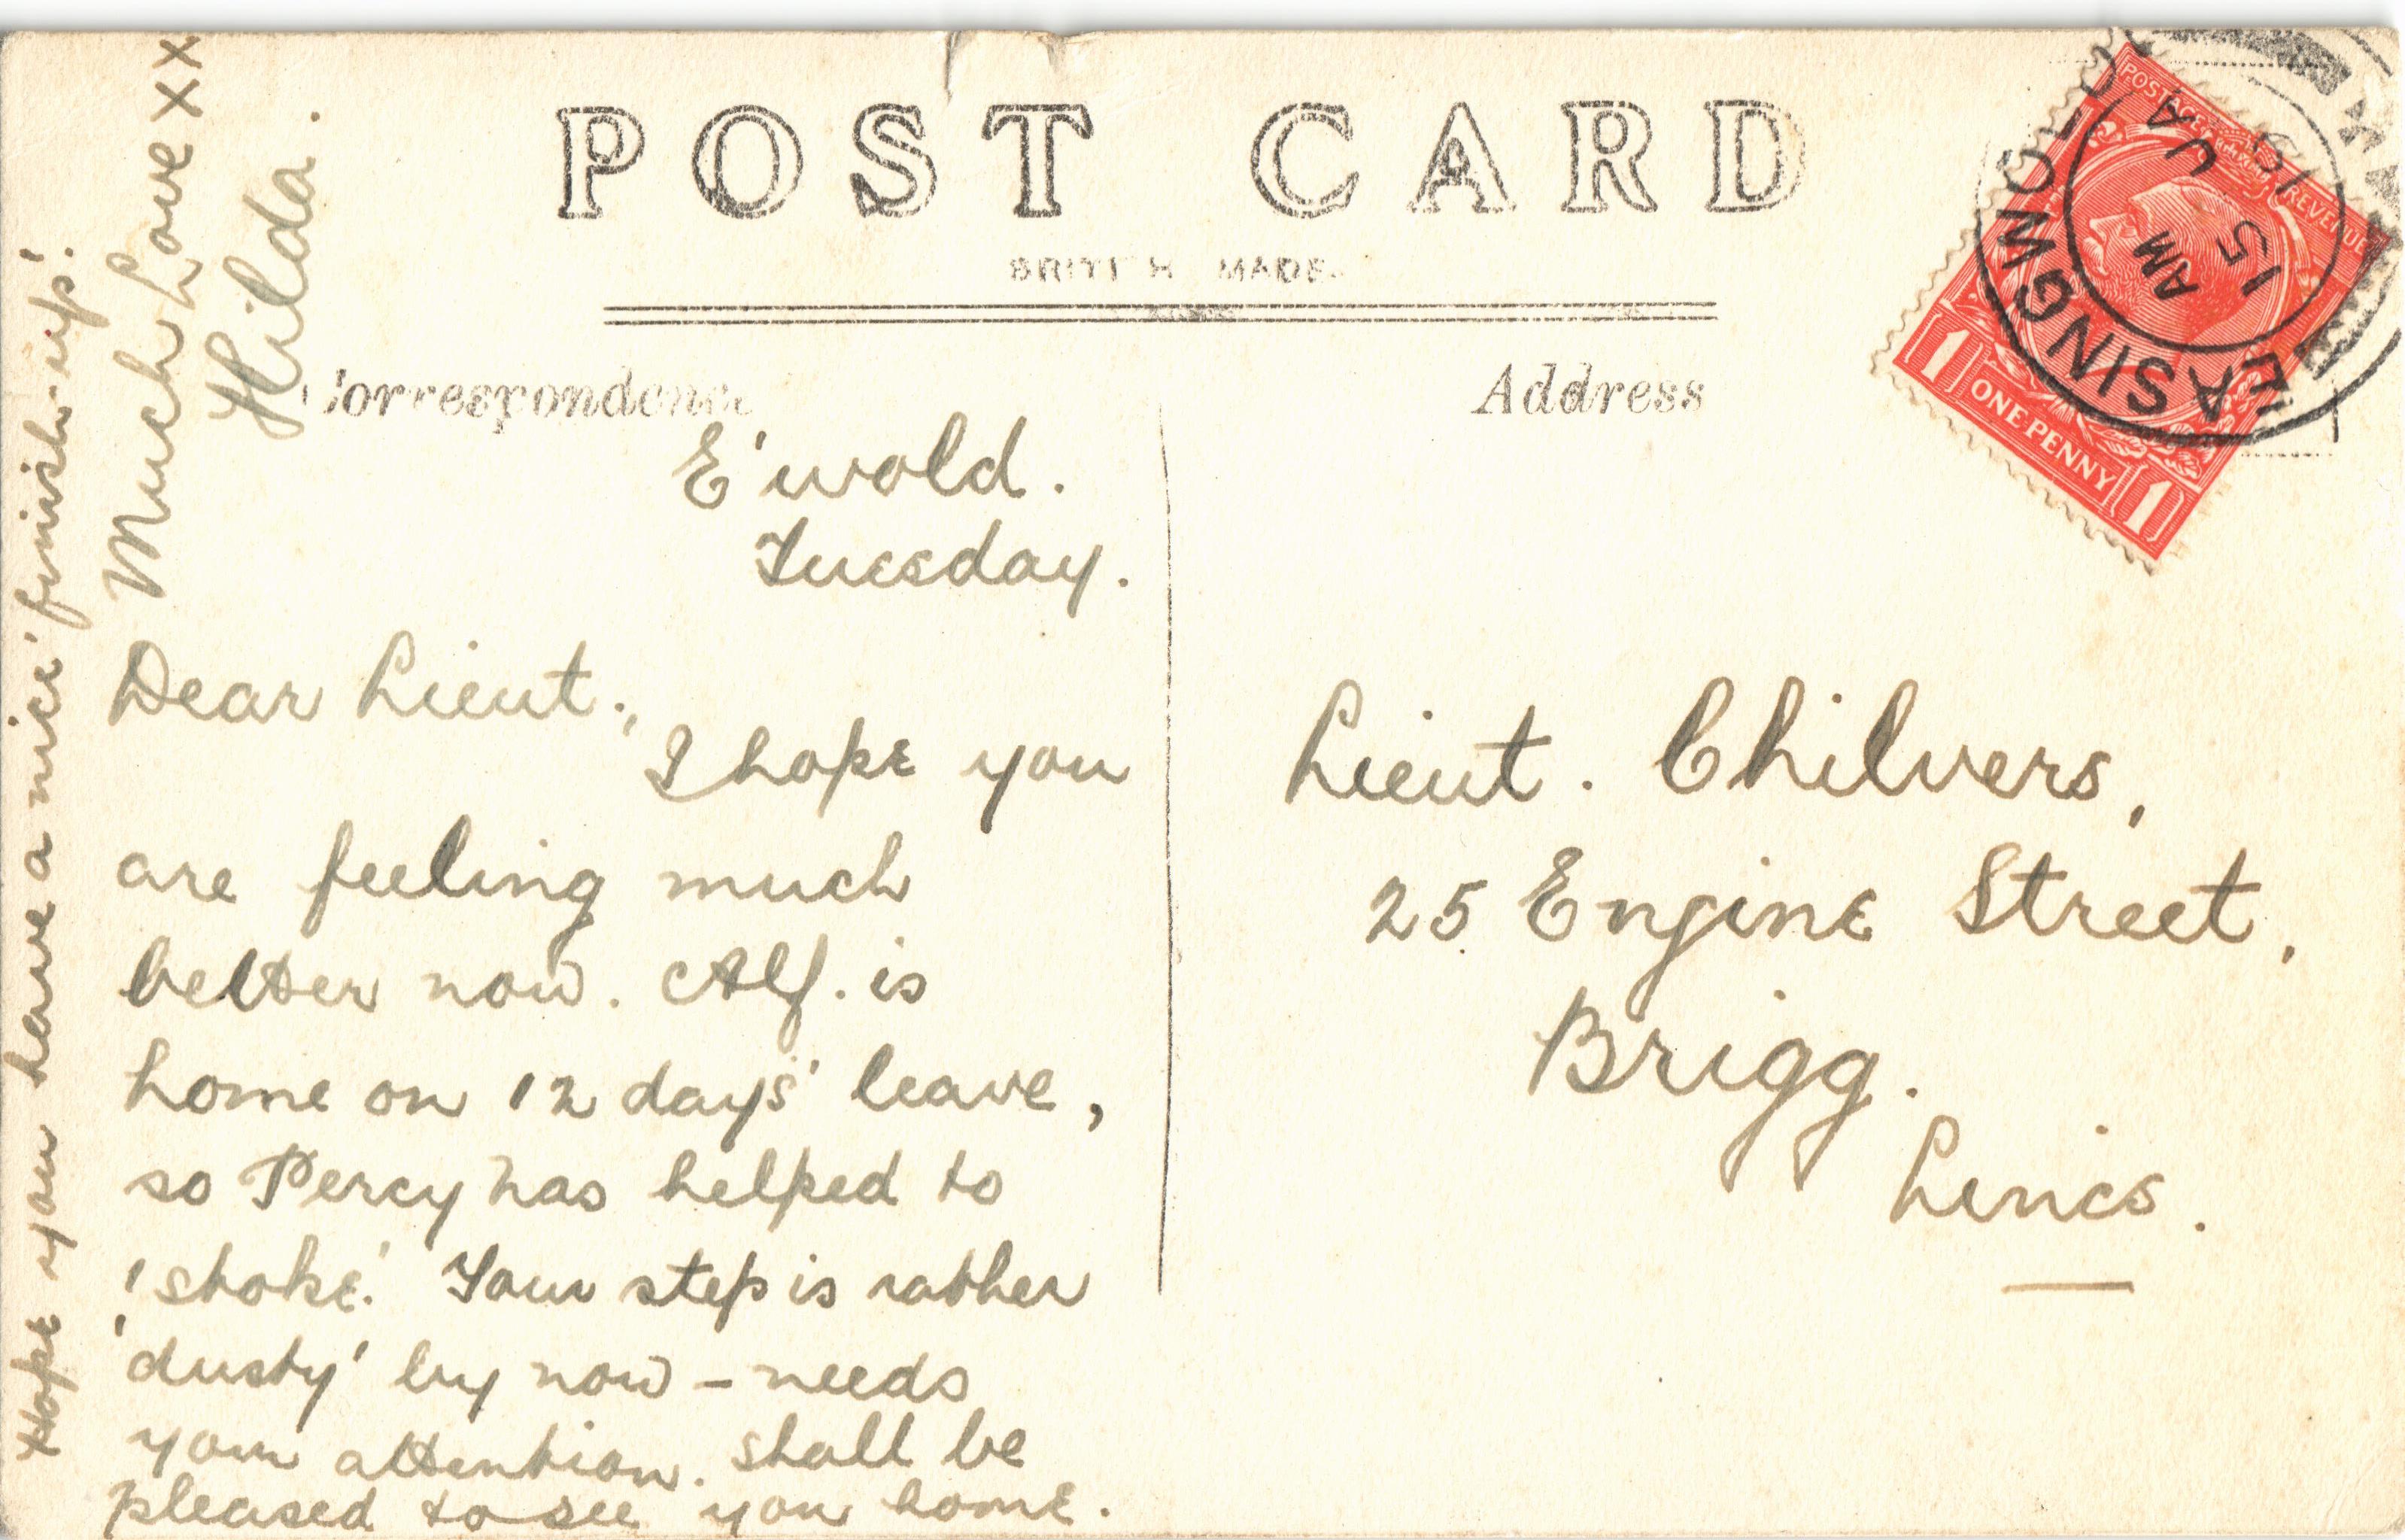 POST CARD
BRITISH MADE
Correspondence
Address
POSTAGE REVENUE
1 ONE PENNY 1
EASINGWOLD
AM
15 JA
19
E'wold.
Tuesday.
Dear Lieut.,
I hope you
are feeling much
better now. Alf. is
home on 12 days' leave,
so Percy has helped to
'stoke'. Your step is rather
'dusty' by now – needs
your attention. Shall be
pleased to see you home.
Hope you have a nice 'finish-up'.
Much Love xx
Hilda.
Lieut. Chilvers,
25 Engine Street,
Brigg.
Lincs.